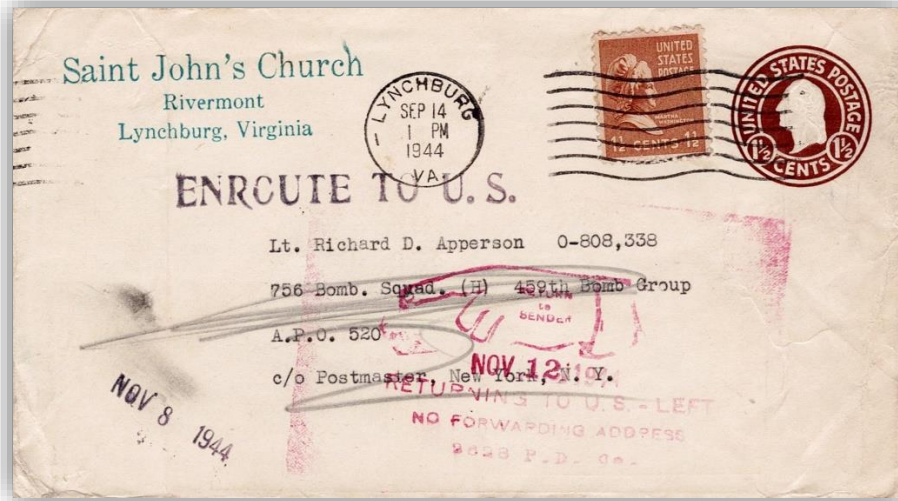 Saint John's Church
Rivermont
Lynchburg, Virginia
LYNCHBURG
SEP 14
1 PM
1944
VA.
UNITED
STATES
POSTAGE
MARTHA
WASHINGTON
1½ CENTS 1½
UNITED STATES POSTAGE
1½ CENTS 1½
ENROUTE TO U.S.
Lt. Richard D. Apperson 0-808,338
756 Bomb. Squad. (H) 459th Bomb Group
RETURN
to
SENDER
A.P.O. 520
NOV 12 1944
c/o Postmaster, New York, N. Y.
RETURNING TO U.S. - LEFT
NO FORWARDING ADDRESS
NOV 8 1944